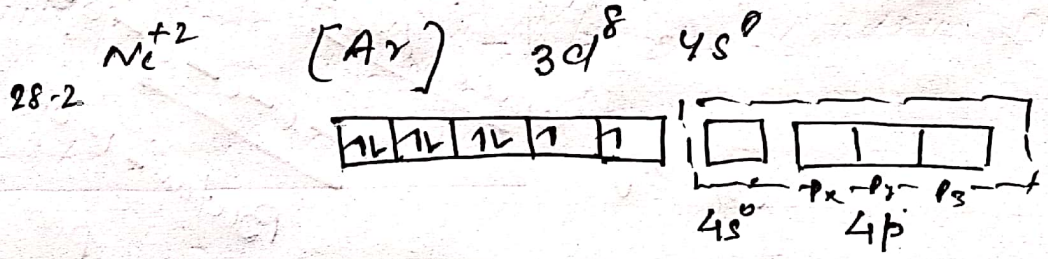 Ni+2 [Ar] 3d8 4s0
28-2
1L 1L 1L 1 1
Px Py Pz
4s0 4p